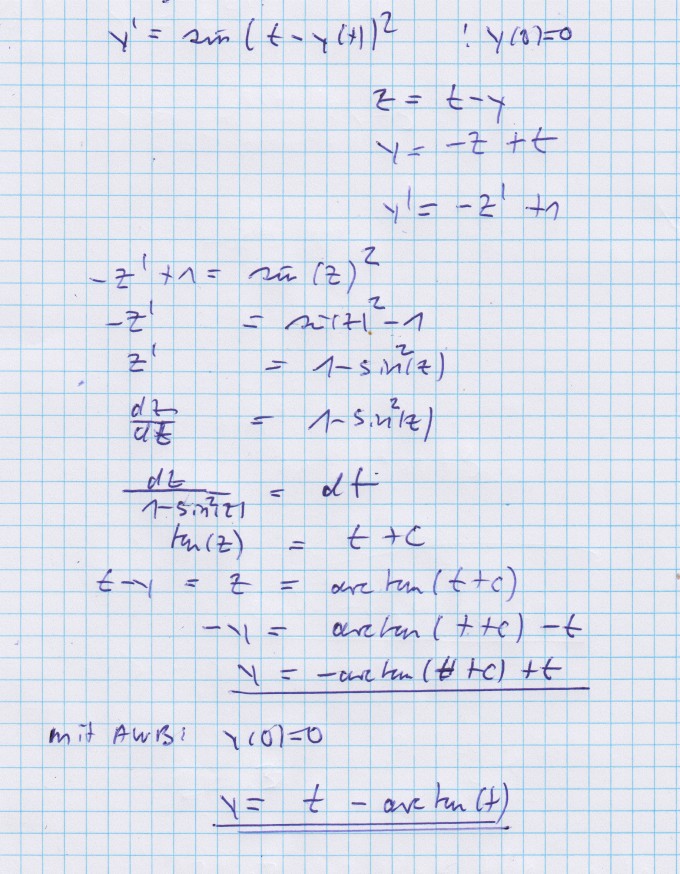 y' = sin (t - y(t))² ; y(0)=0
z = t-y
y = -z + t
y' = -z' +1
-z' +1 = sin (z)²
-z' = sin(z)² - 1
z' = 1 - sin²(z)
dz/dt = 1 - sin²(z)
dz/(1-sin²(z)) = dt
tan(z) = t + C
t-y = z = arctan(t+C)
-y = arctan(t+C) - t
y = -arctan(t+C) + t
mit AWB: y(0)=0
y = t - arctan(t)